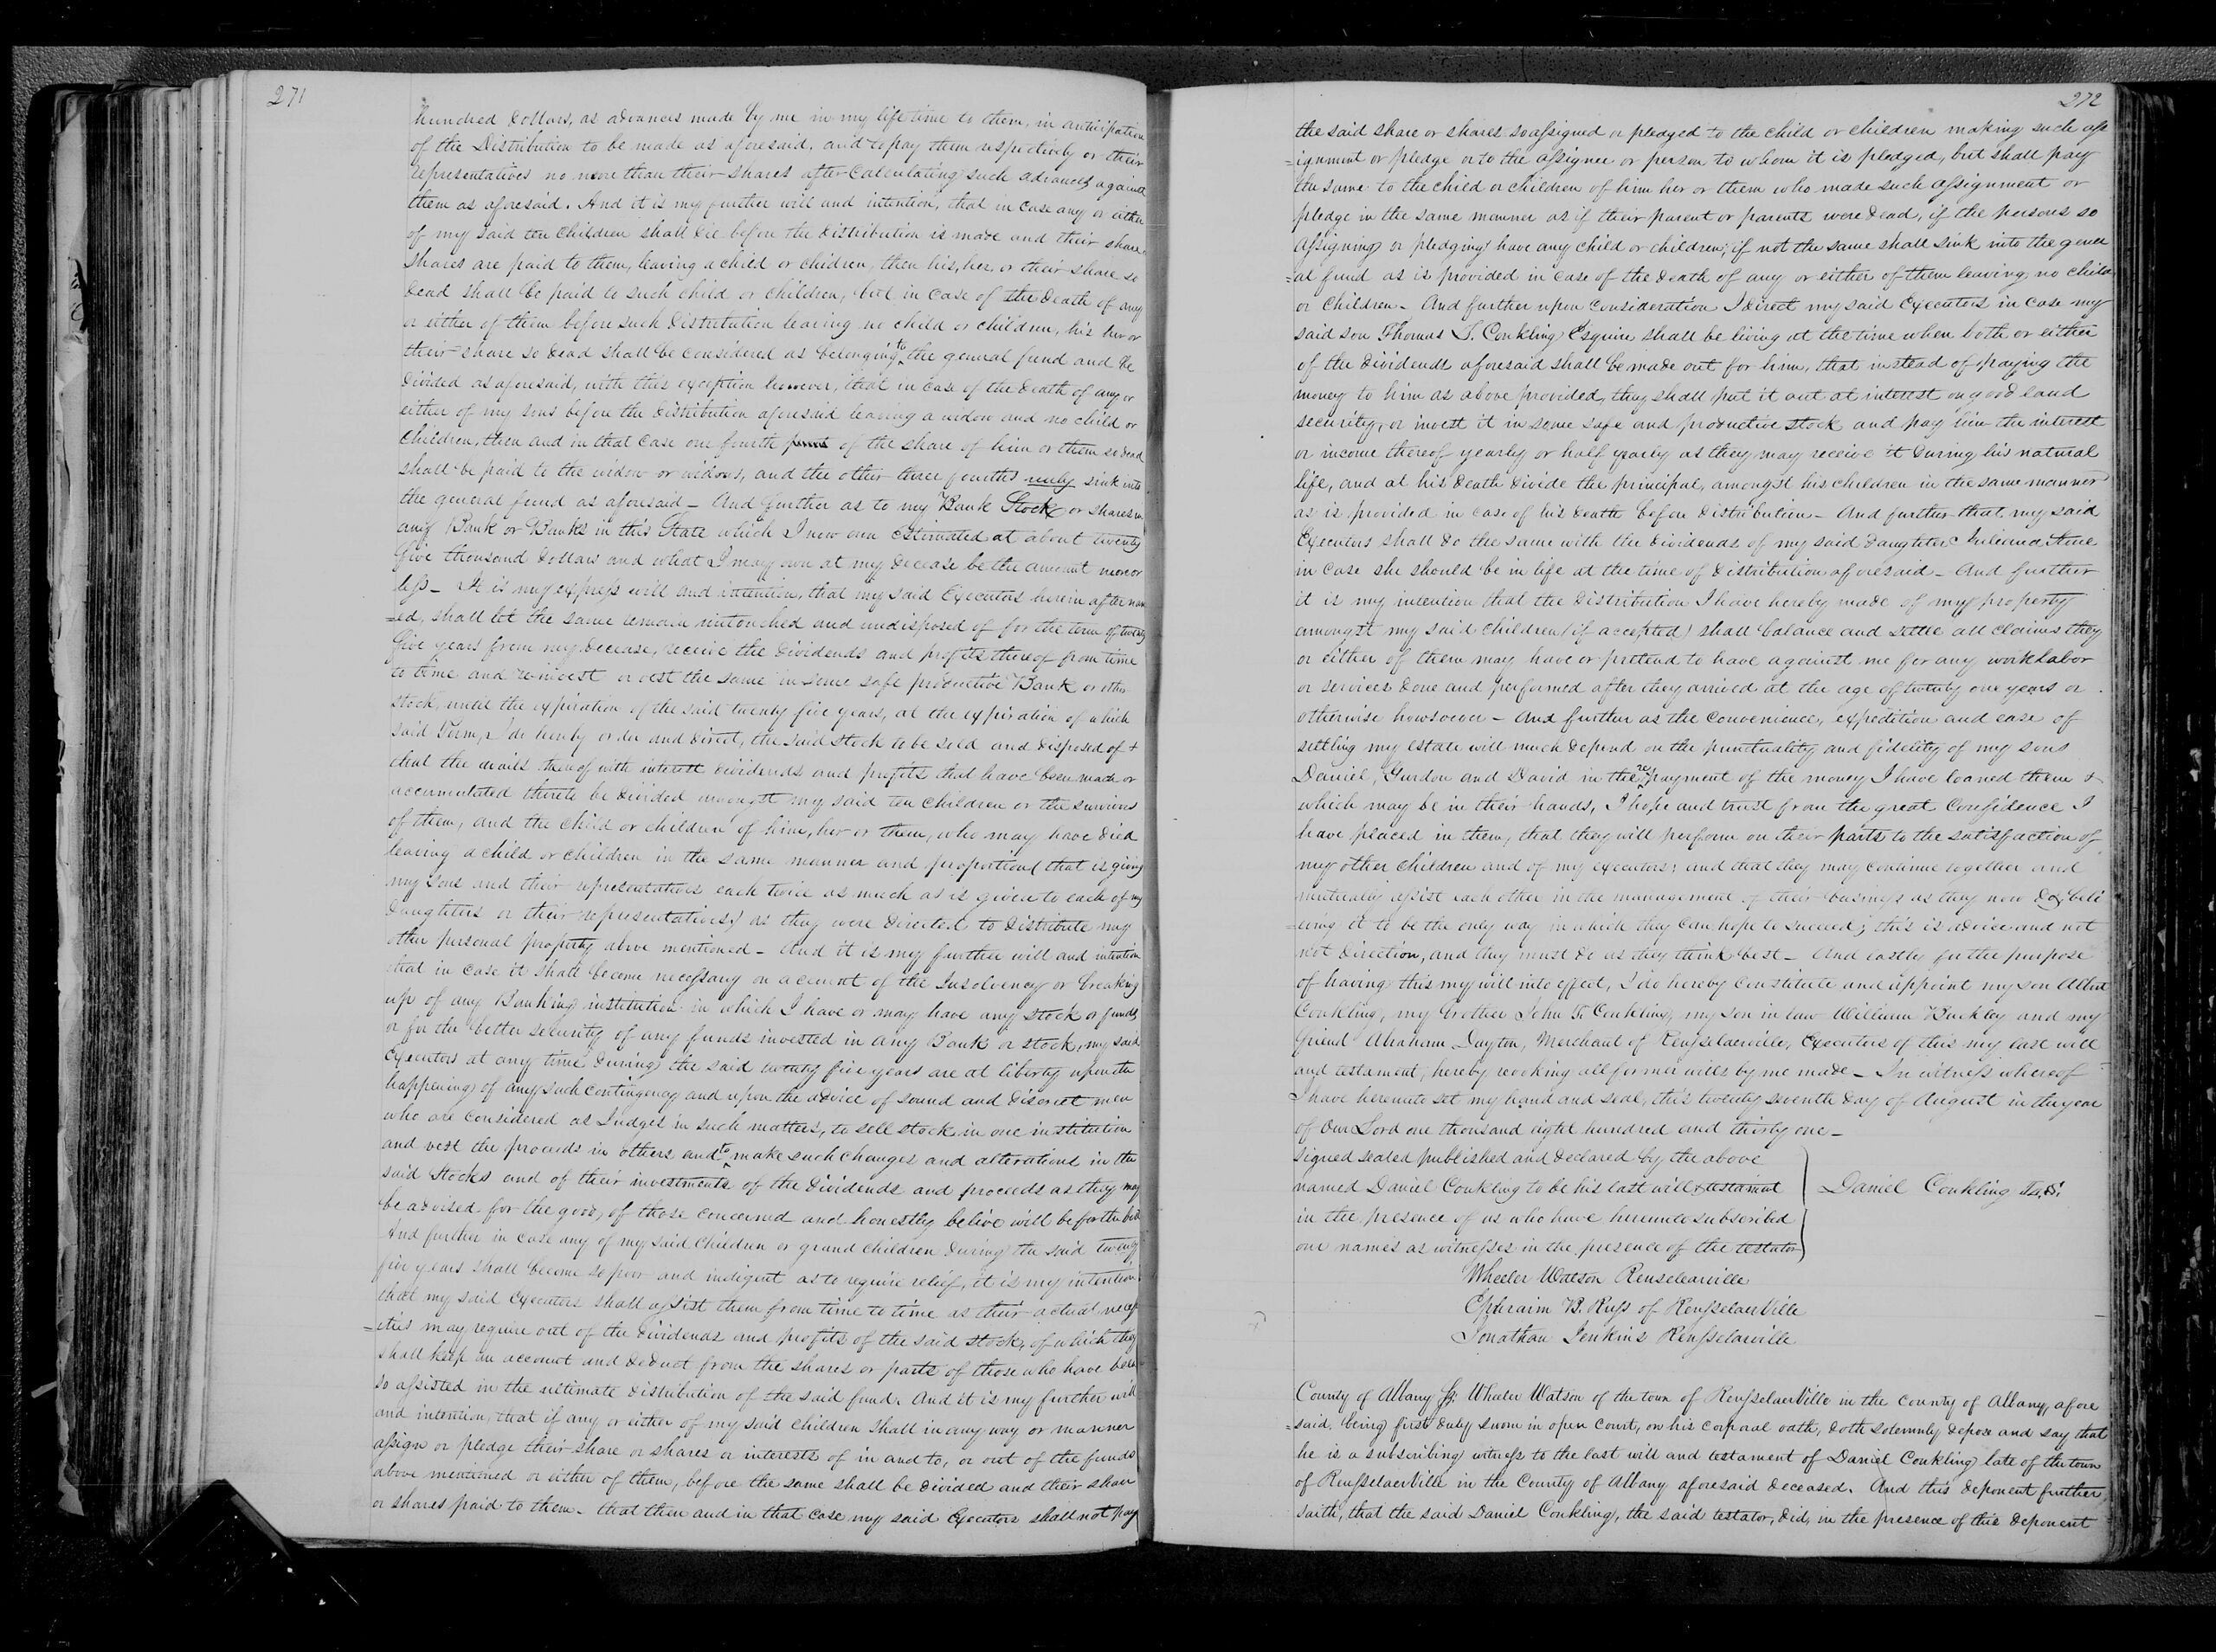 271
hundred Dollars, as advances made by me in my life time to them, in anticipation
of the Distribution to be made as aforesaid, and to pay them respectively or their
representatives no more than their shares after Calculating such advances against
them as aforesaid. And it is my further will and intention, that in case any or either
of my said ten Children shall Die before the Distribution is made and their share
shares are paid to them, leaving a child or chidren, then his, her, or their share so
Dead shall be paid to such child or children, but in case of the Death of any
or either of them before such Distribution leaving no child or children, his her or
their share so Dead shall be considered as belonging to the general fund and be
Divided as aforesaid, with this exception however, that in case of the Death of any or
either of my sons before the Distribution aforesaid leaving a widow and no child or
Children, then and in that Case one fourth of the share of him or them so Dead
shall be paid to the widow or widows, and the other three fourths only sink into
the general fund as aforesaid _ And further as to my Bank Stock or shares in
any Bank or Banks in this State which I now own estimated at about twenty
five thousand Dollars and what I may own at my Decease be the amount more or
less _ It is my express will and intention, that my said Executors herein after nam
=ed, shall let the same remain untouched and undisposed of for the term of twenty
five years from my Decease, receive the Dividends and profits thereof from time
to time and re-invest or vest the same in some safe productive Bank or other
stock, until the expiration of the said twenty five years, at the expiration of which
said Term, I do hereby order and Direct, the said stock to be sold and Disposed of &
that the avails thereof with interest Dividends and profits that have been made or
accumulated thereto be Divided amongst my said ten Children or the survivors
of them, and the child or children of him, her or them, who may have Died
leaving a child or children in the same manner and proportion (that is giving
my sons and their representatives each twice as much as is given to each of my
Daughters or their representatives) as they were Directed to Distribute my
other personal property above mentioned _ And it is my further will and intention
that in case it shall become necessary on account of the Insolvency or breaking
up of any Banking institution in which I have or may have any stock or funds
or for the better security of any funds invested in any Bank or stock, my said
Executors at any time During the said twenty five years are at liberty upon the
happening of any such contingency and upon the advice of sound and Discreet men
who are considered as Judges in such matters, to sell stock in one institution
and vest the proceeds in others and to make such changes and alterations in the
said Stocks and of their investments of the Dividends and proceeds as they may
be advised for the good of those concerned and honestly belive will be for the best
And further in case any of my said Children or grand children During the said twenty
five years shall become so poor and indigent as to require relief, it is my intention
that my said Executors shall assist them from time to time as their actual necess
=ities may require out of the Dividends and profits of the said stock, of which they
shall keep an account and Deduct from the shares or parts of those who have been
so assisted in the ultimate Distribution of the said fund. And it is my further will
and intention, that if any or either of my said Children shall in any way or manner
assign or pledge their share or shares or interests of in and to, or out of the funds
above mentioned or either of them, before the same shall be Divided and their share
or shares paid to them. that then and in that case my said Executors shall not pay
272
the said share or shares so assigned or pledged to the child or children making such ass
=ignment or pledge or to the assignee or person to whom it is pledged, but shall pay
the same to the child or children of him her or them who made such assignment or
pledge in the same manner as if their parent or parents were Dead, if the persons so
Assigning or pledging have any child or children; if not the same shall sink into the gener
=al fund as is provided in case of the Death of any or either of them leaving no child
or Children _ And further upon Consideration I Direct my said Executors in case my
said son Thomas S. Conkling Esquire shall be living at the time when both or either
of the Dividends aforesaid shall be made out for him, that instead of paying the
money to him as above provided, they shall put it out at interest on good land
security, or invest it in some safe and productive stock and pay him the interest
or income thereof yearly or half yearly as they may receive it During his natural
life, and at his Death Divide the principal, amongst his children in the same manner
as is provided in case of his Death before Distribution _ And further that my said
Executors shall Do the same with the Dividends of my said Daughter
in case she should be in life at the time of Distribution aforesaid _ And further
it is my intention that the Distribution I have hereby made of my property
amongst my said Children (if accepted) shall balance and settle all claims they
or either of them may have or pretend to have against me for any work labor
or services Done and performed after they arrived at the age of twenty one years or
otherwise howsoever _ And further as the convenience, expedition and ease of
settling my estate will much Depend on the punctuality and fidelity of my sons
Daniel, Gurdon and David in the re payment of the money I have loaned them &
which may be in their hands, I hope and trust from the great Confidence I
have placed in them, that they will perform on their parts to the satisfaction of
my other Children and of my executors; and that they may continue together and
mutually assist each other in the management of their business as they now Do, beli
=eving it to be the only way in which they can hope to succeed; this is advice and not
not Direction, and they must Do as they think best _ And lastly for the purpose
of having this my will into effect, I do hereby Constitute and appoint my son Albert
Conkling, my brother John T. Conkling, my son in law William Buckley and my
friend Abraham Dayton, Merchant of Rensselaerville, Executors of this my last will
and testament, hereby revoking all former wills by me made _ In witness whereof
I have hereunto set my hand and seal, this twenty seventh Day of August in the year
of Our Lord one thousand eight hundred and thirty one _
Signed sealed published and Declared by the above
named Daniel Conkling to be his last will & testament
Daniel Conkling L.S.
in the presence of us who have hereunto subscribed
our names as witnesses in the presence of the testator
Wheeler Watson Renselearville
Ephraim B. Russ of RensselaerVille
Jonathan Jenkins Rensselarville
County of Albany Ss: Wheeler Watson of the town of RensselaerVille in the County of Albany, afore
=said, being first Duly sworn in open Court, on his corporal oath, Doth solemnly Depose and say that
he is a subscribing witness to the last will and testament of Daniel Conkling late of the town
of RensselaerVille in the County of Albany aforesaid Deceased. And this Deponent further
saith, that the said Daniel Conkling, the said testator, Did, in the presence of this Deponent